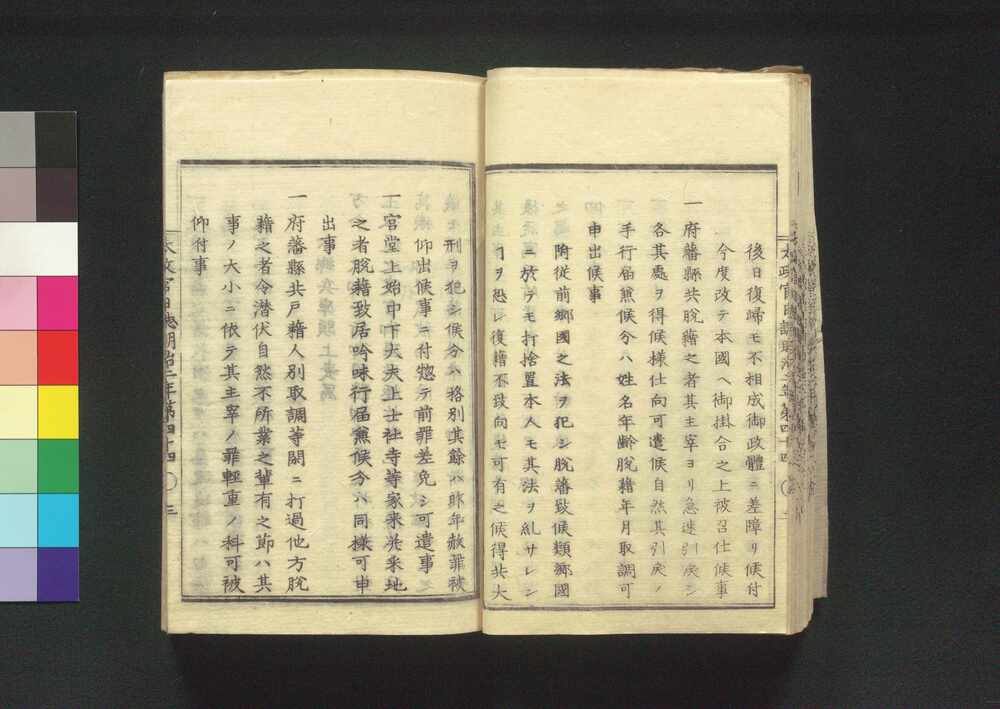 後日復歸モ不相成御政體ニ差障リ候付
今度改テ本國ヘ御掛合之上被召仕候事
一府藩縣共脱籍之者其主宰ヨリ急速引戻シ
各其處ヲ得候樣仕向可遣候自然其引戻ノ
手行届兼候分ハ姓名年齢脱籍年月取調可
申出候事
附從前郷國之法ヲ犯シ脱藩致候類郷國
ニ於テモ打捨置本人モ其法ヲ糺サレン
ヿヲ恐レ復籍不致向モ可有之候得共大
刑ヲ犯シ候分ハ格別其餘ハ昨年赦罪被
仰出候事ニ付惣テ前罪差免シ可遣事
一宮堂上始中下大夫上士社寺等家来并采地
之者脱籍致居吟味行届兼候分ハ同樣可申
出事
一府藩縣共戸籍人別取調等閑ニ打過他方脱
籍之者令潜伏自然不所業之輩有之節ハ其
事ノ大小ニ依テ其主宰ノ罪輕重ノ科可被
仰付事
太政官日誌明治二年第四十四 三